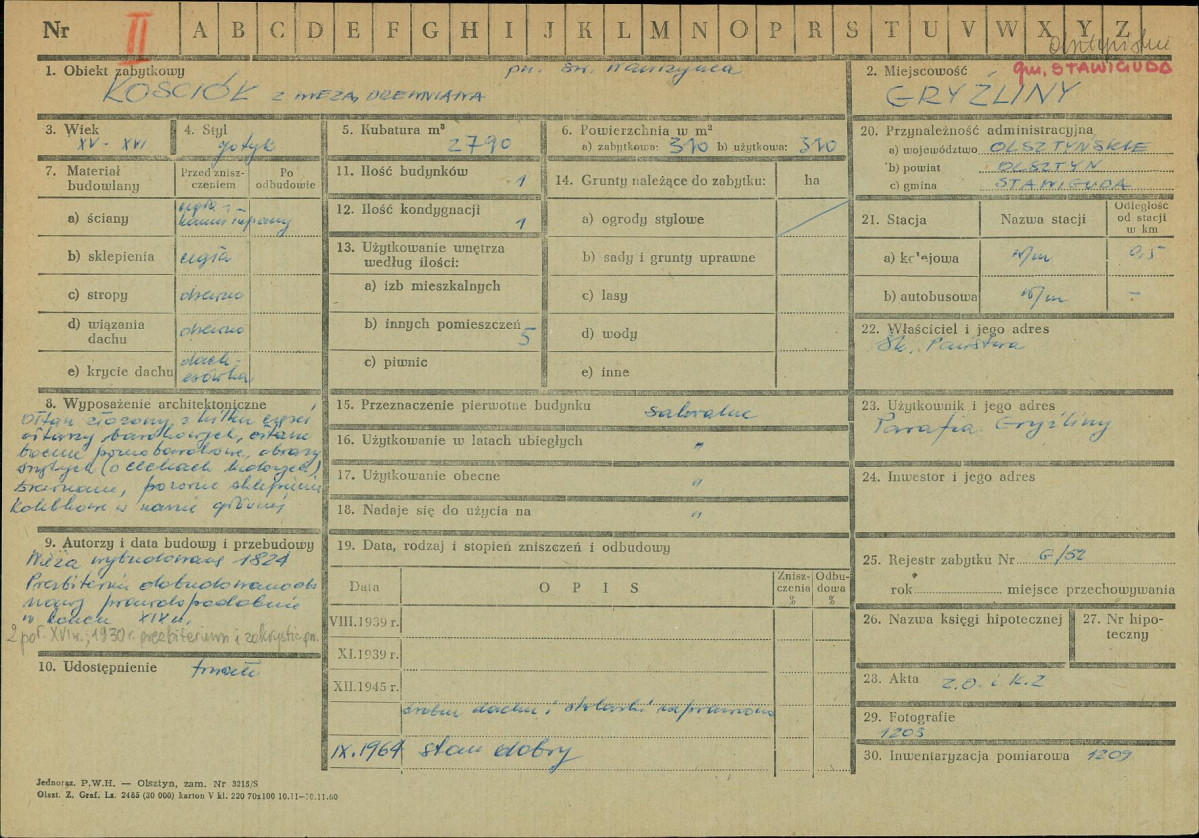 Nr II A B C D E F G H I J K L M N O P R S T U V W X Y Z
gm. STAWIGUDA
1. Obiekt zabytkowy pw. św. Wawrzyńca
KOŚCIÓŁ Z WIEŻĄ DREWNIANĄ
2. Miejscowość
GRYŹLINY
3. Wiek
XV - XVI
4. Styl
gotyk
5. Kubatura m³
2790
6. Powierzchnia w m²
a) zabytkowa: 310 b) użytkowa: 310
7. Materiał budowlany
Przed zniszczeniem
Po odbudowie
a) ściany cegła, kamień łupany
b) sklepienia cegła
c) stropy drewno
d) wiązania dachu drewno
e) krycie dachu dachówka
8. Wyposażenie architektoniczne
Ołtarz złożony z kilku części
ołtarzy barokowych, ołtarze
boczne późnobarokowe, obrazy
świętych (o cechach ludowych)
drewniane, pozorne sklepienie
kolebkowe w nawie głównej
9. Autorzy i data budowy i przebudowy
Wieża wybudowana 1824
Prezbiterium dobudowano do
nawy prawdopodobnie
w końcu XIX w.
2 poł. XVI w.; 1930 r. prezbiterium i zakrystia pn.
10. Udostępnienie
11. Ilość budynków 1
12. Ilość kondygnacji 1
13. Użytkowanie wnętrza według ilości:
a) izb mieszkalnych
b) innych pomieszczeń 5
c) piwnic
14. Grunty należące do zabytku: ha
a) ogrody stylowe
b) sady i grunty uprawne
c) lasy
d) wody
e) inne
15. Przeznaczenie pierwotne budynku sakralne
16. Użytkowanie w latach ubiegłych "
17. Użytkowanie obecne "
18. Nadaje się do użycia na "
19. Data, rodzaj i stopień zniszczeń i odbudowy
Data OPIS Zniszczenia % Odbudowa %
VIII.1939 r.
XI.1939 r.
XII.1945 r.
dachu i
IX.1964 stan dobry
20. Przynależność administracyjna
a) województwo OLSZTYŃSKIE
b) powiat OLSZTYN
c) gmina STAWIGUDA
21. Stacja Nazwa stacji Odległość od stacji w km
a) kolejowa w/m 0,5
b) autobusowa w/m -
22. Właściciel i jego adres
Sk. Państwa
23. Użytkownik i jego adres
Parafia Gryźliny
24. Inwestor i jego adres
25. Rejestr zabytku Nr G/52
rok miejsce przechowywania
26. Nazwa księgi hipotecznej
27. Nr hipoteczny
28. Akta Z.O. i K.Z
29. Fotografie
1203
30. Inwentaryzacja pomiarowa 1209
Jednoraz. P.W.H. — Olsztyn, zam. Nr 3215/S
Olszt. Z. Graf. Lz. 2485 (30 000) karton V kl. 220 70x100 10.11—10.11.60